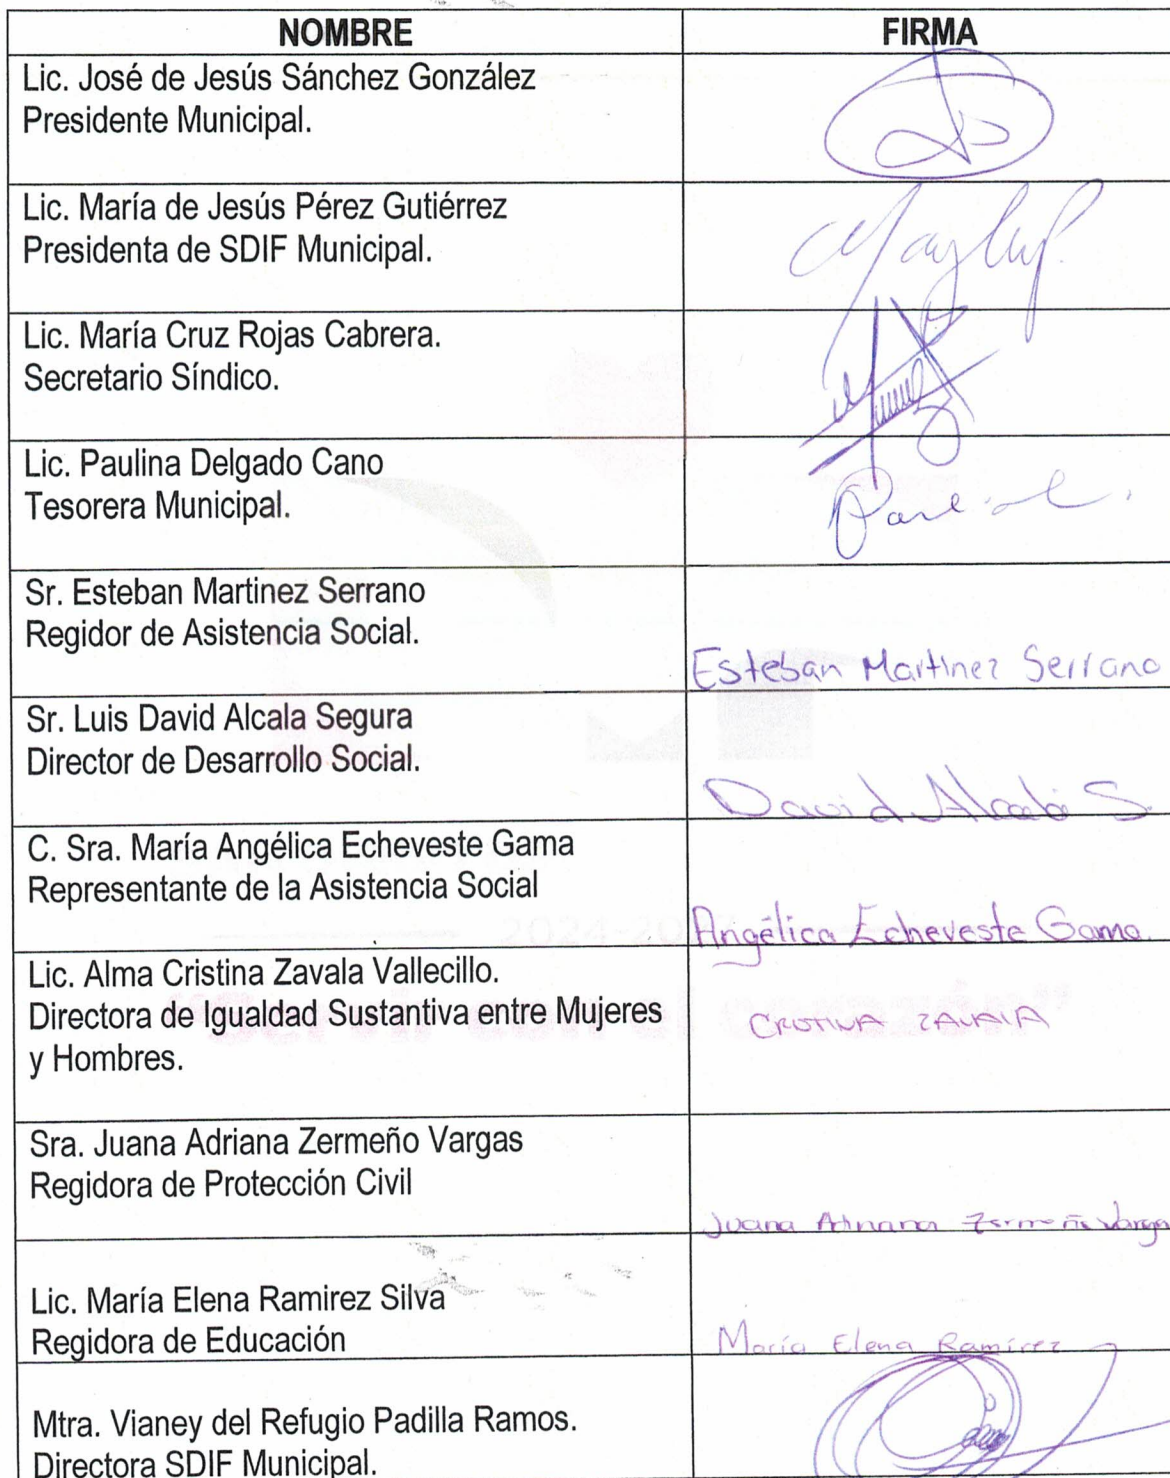 NOMBRE FIRMA
Lic. José de Jesús Sánchez González
Presidente Municipal.
Lic. María de Jesús Pérez Gutiérrez
Presidenta de SDIF Municipal.
Lic. María Cruz Rojas Cabrera.
Secretario Síndico.
Lic. Paulina Delgado Cano
Tesorera Municipal.
Sr. Esteban Martinez Serrano
Regidor de Asistencia Social.
Esteban Martinez Serrano
Sr. Luis David Alcala Segura
Director de Desarrollo Social.
David Alcalá S.
C. Sra. María Angélica Echeveste Gama
Representante de la Asistencia Social
Angélica Echeveste Gama.
Lic. Alma Cristina Zavala Vallecillo.
Directora de Igualdad Sustantiva entre Mujeres
y Hombres.
CRISTINA ZAVALA
Sra. Juana Adriana Zermeño Vargas
Regidora de Protección Civil
Juana Adriana Zermeño Vargas
Lic. María Elena Ramirez Silva
Regidora de Educación
María Elena Ramírez
Mtra. Vianey del Refugio Padilla Ramos.
Directora SDIF Municipal.